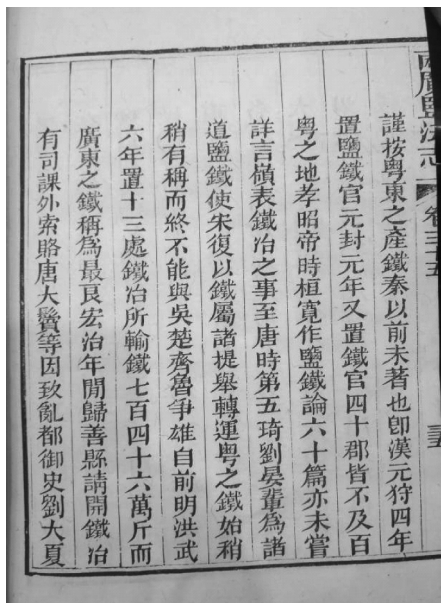 兩廣鹽法志
卷三十五
謹按粤東之產鐵秦以前未著也卽漢元狩四年
置鹽鐵官元封元年又置鐵官四十郡皆不及百
粤之地孝昭帝時桓寬作鹽鐵論六十篇亦未嘗
詳言嶺表鐵冶之事至唐時第五琦劉晏輩爲諸
道鹽鐵使宋復以鐵屬諸提舉轉運粤之鐵始稍
稍有稱而終不能與吳楚齊魯爭雄自前明洪武
六年置十三處鐵冶所輸鐵七百四十六萬斤而
廣東之鐵稱爲最良宏治年閒歸善縣請開鐵冶
有司課外索賂唐大鬢等因致亂都御史劉大夏